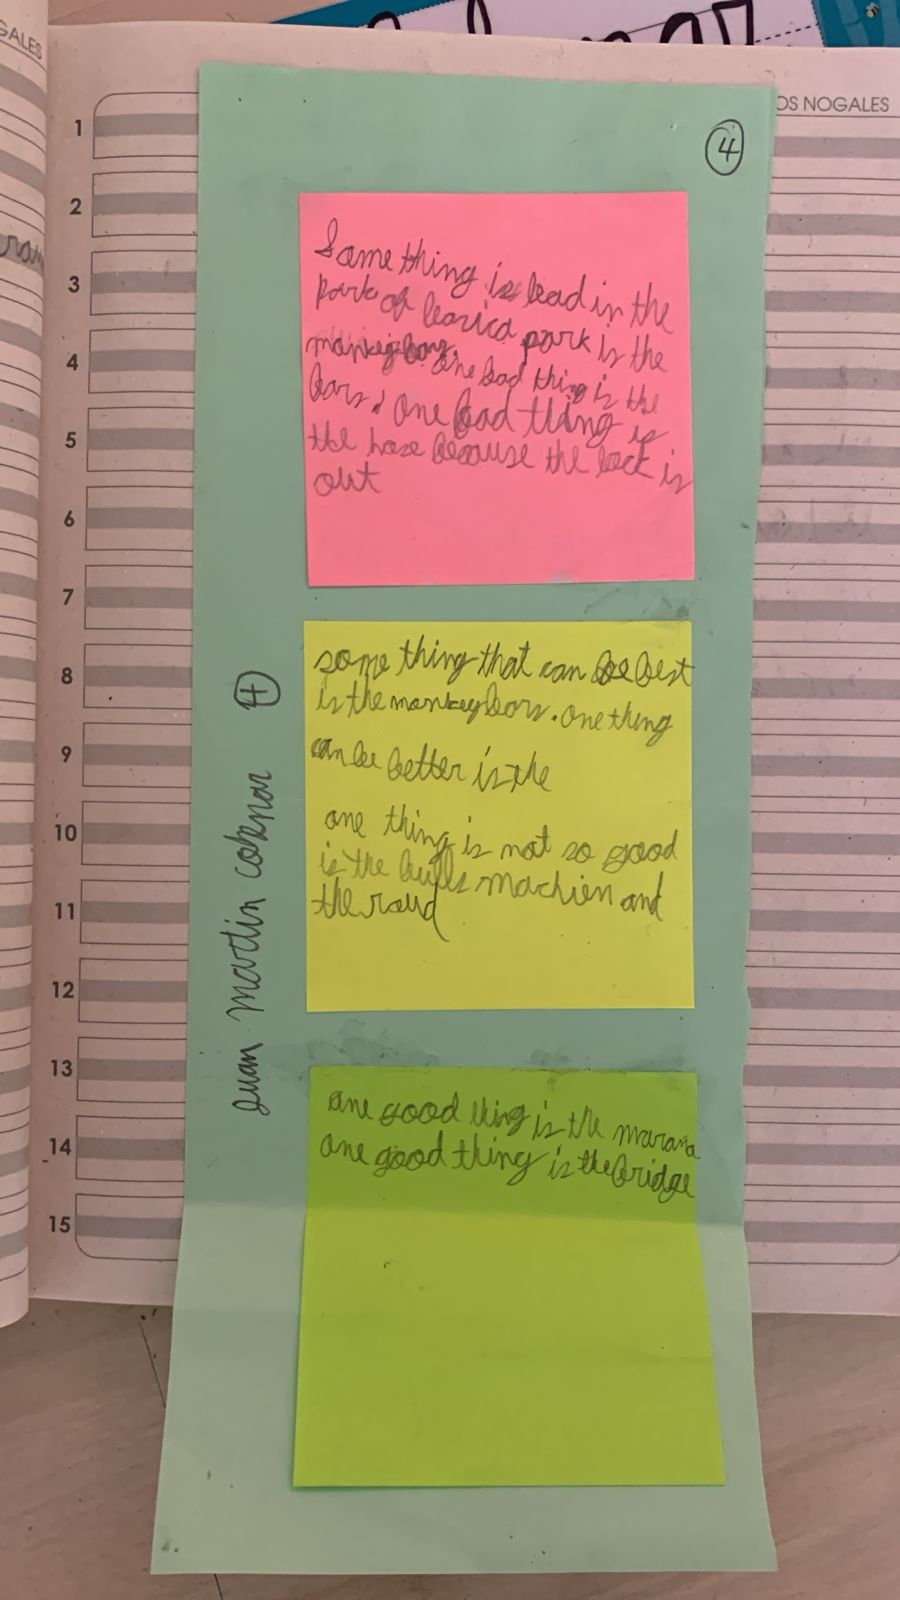 GALES
OS NOGALES
1
2
3
4
5
6
7
8
9
10
11
12
13
14
15
4
Some thing is bad in the
park of barica park is the
monkey bars. One bad thing is the
bars, One bad thing is
the hose because the lock is
out
some thing that can be best
is the monkey bars. One thing
can be better is the
one thing is not so good
is the bulls machien and
the
one good thing is the marana
one good thing is the bridge
Juan martin 4